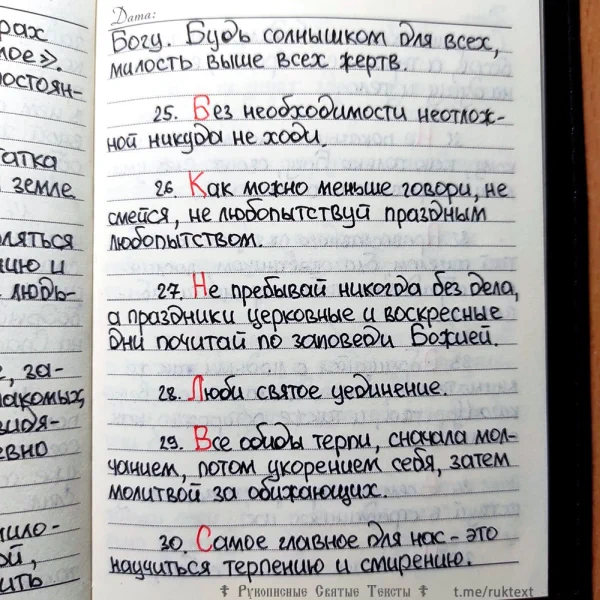 рах
лое».
постоян-
татка
земле
ляться
цию и
людь-
е, за-
накомых,
видя-
евно
мило-
ой,
ить
Дата:
Богу. Будь солнышком для всех,
милость выше всех жертв.
25. Без необходимости неотлож-
ной никуда не ходи.
26. Как можно меньше говори, не
смейся, не любопытствуй праздным
любопытством.
27. Не пребывай никогда без дела,
а праздники церковные и воскресные
дни почитай по заповеди Божией.
28. Люби святое уединение.
29. Все обиды терпи, сначала мол-
чанием, потом укорением себя, затем
молитвой за обижающих.
30. Самое главное для нас - это
научиться терпению и смирению.
☦ Рукописные Святые Тексты ☦ t.me/ruktext